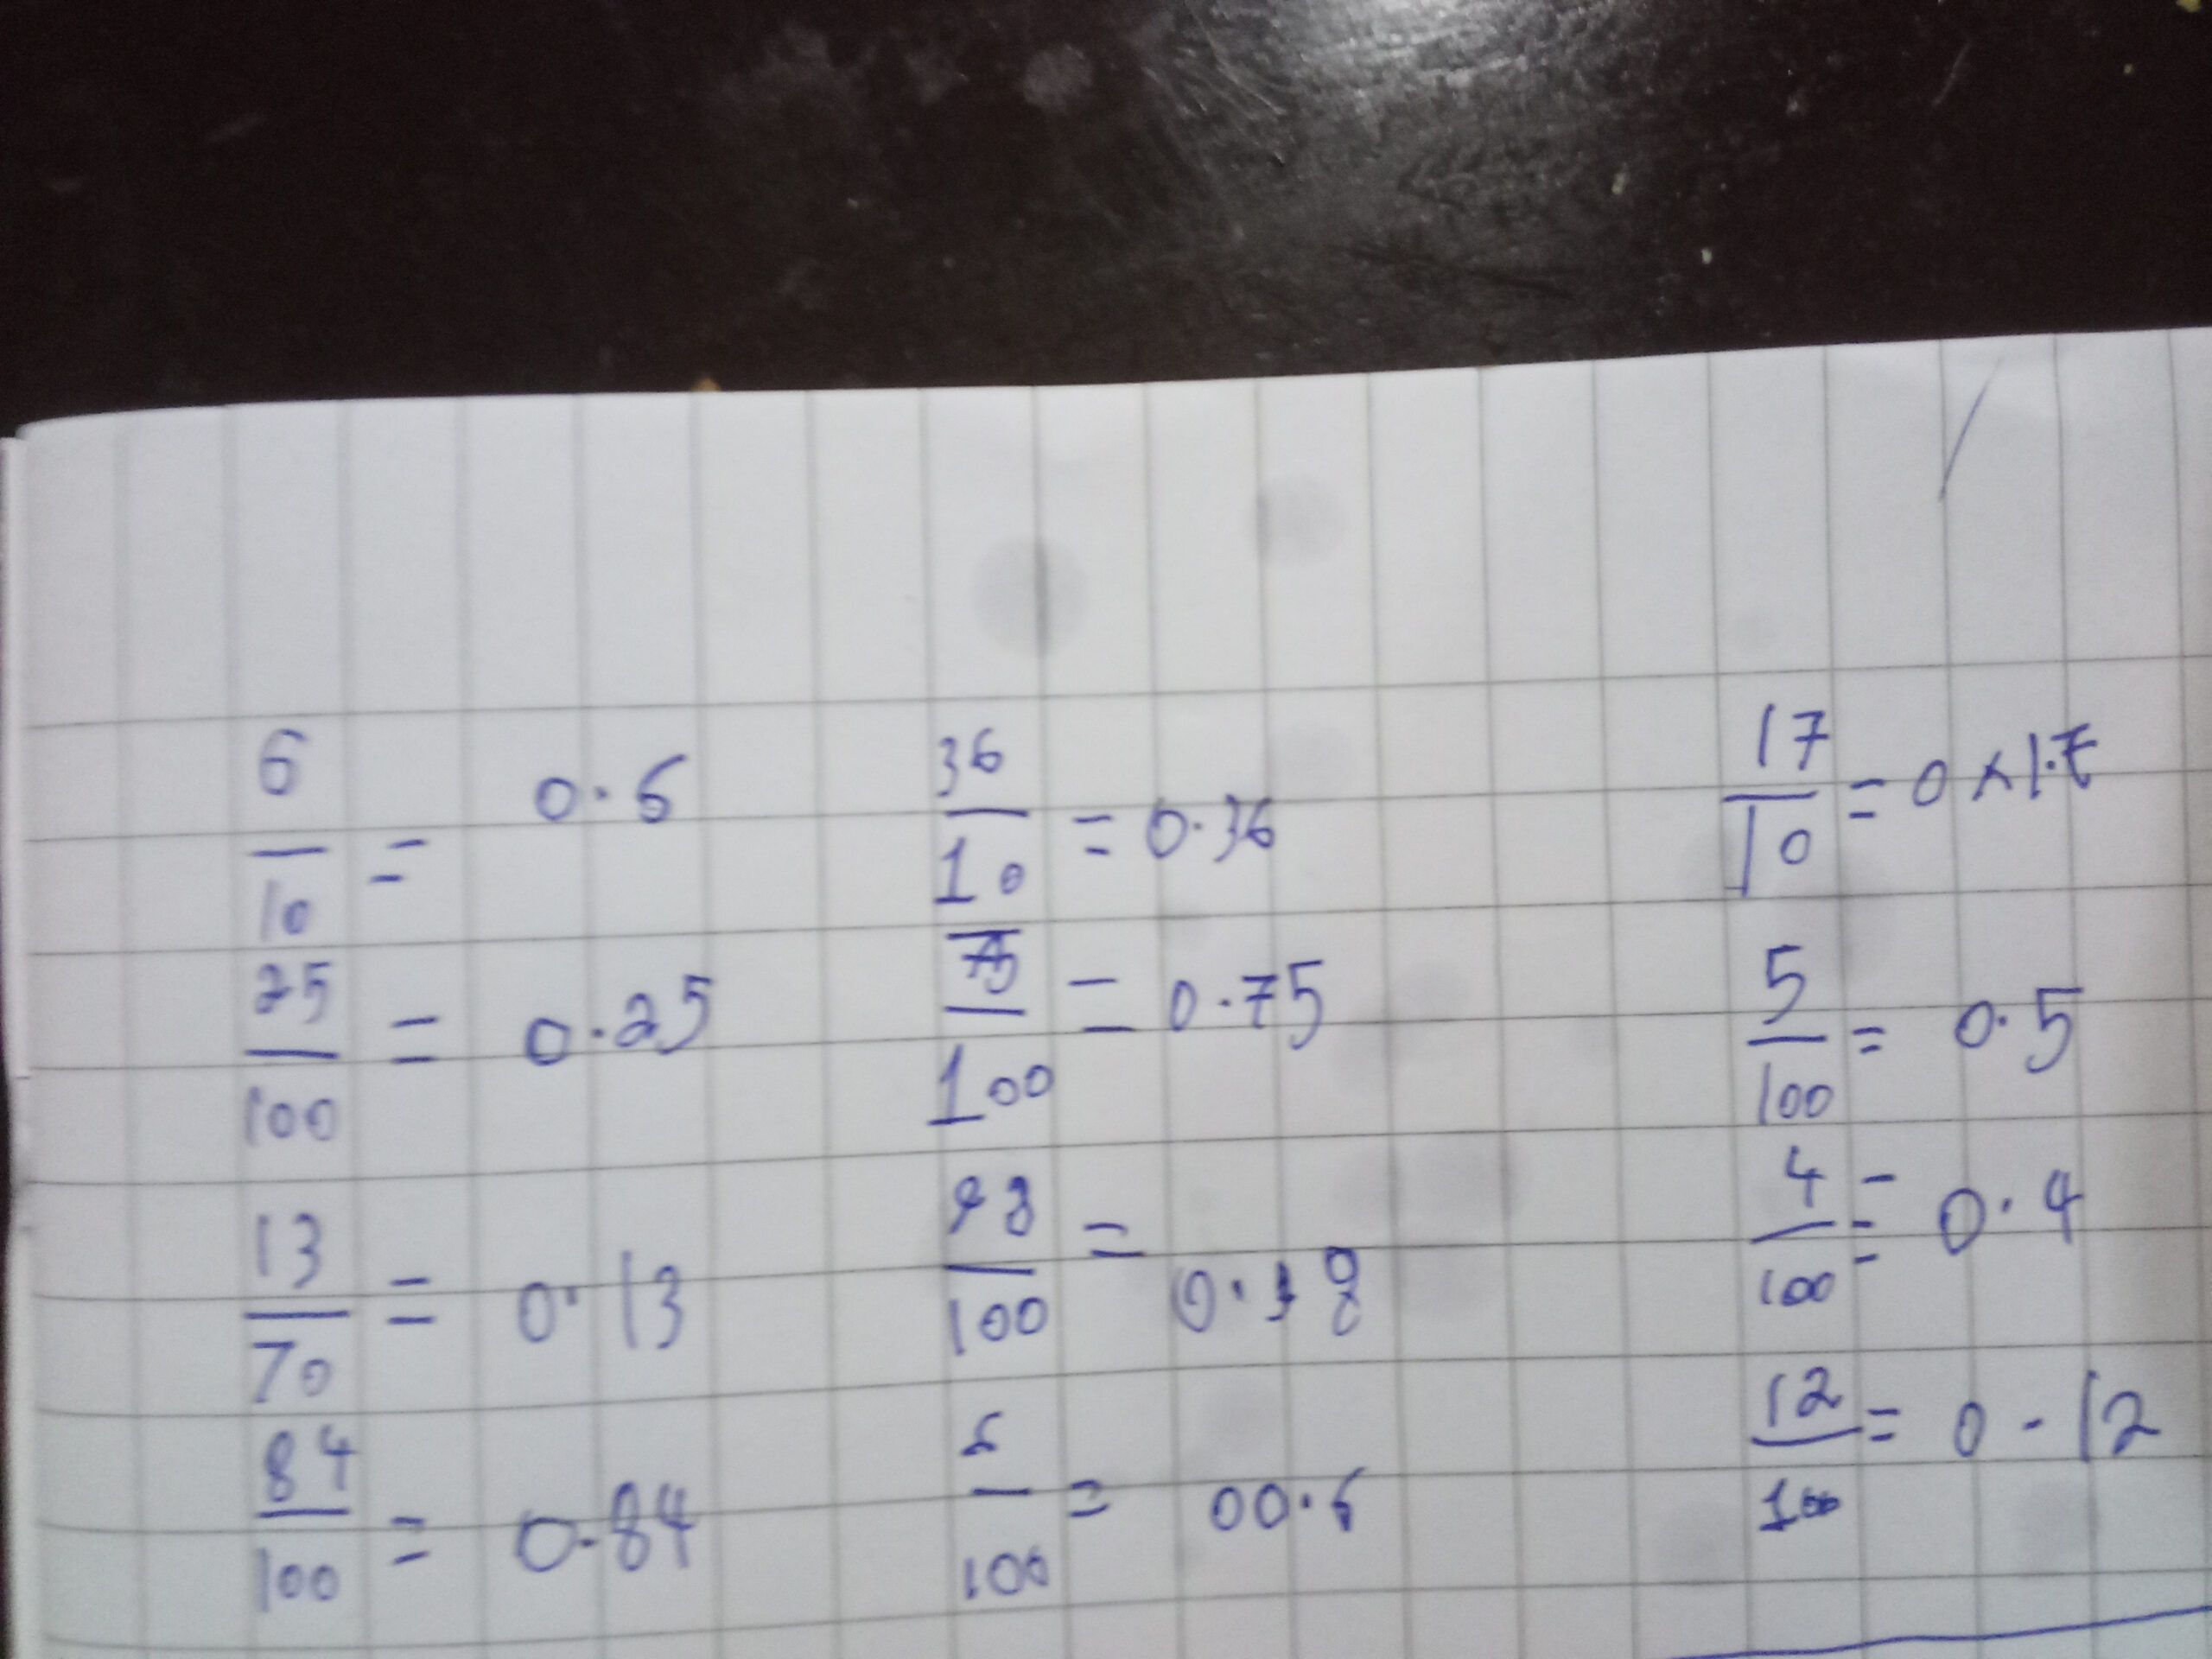 6/10 = 0.6
25/100 = 0.25
13/10 = 0.13
84/100 = 0.84
36/10 = 0.36
75/100 = 0.75
98/100 = 0.98
6/100 = 00.6
17/10 = 0 × 1.7
5/100 = 0.5
4/100 = 0.4
12/100 = 0.12